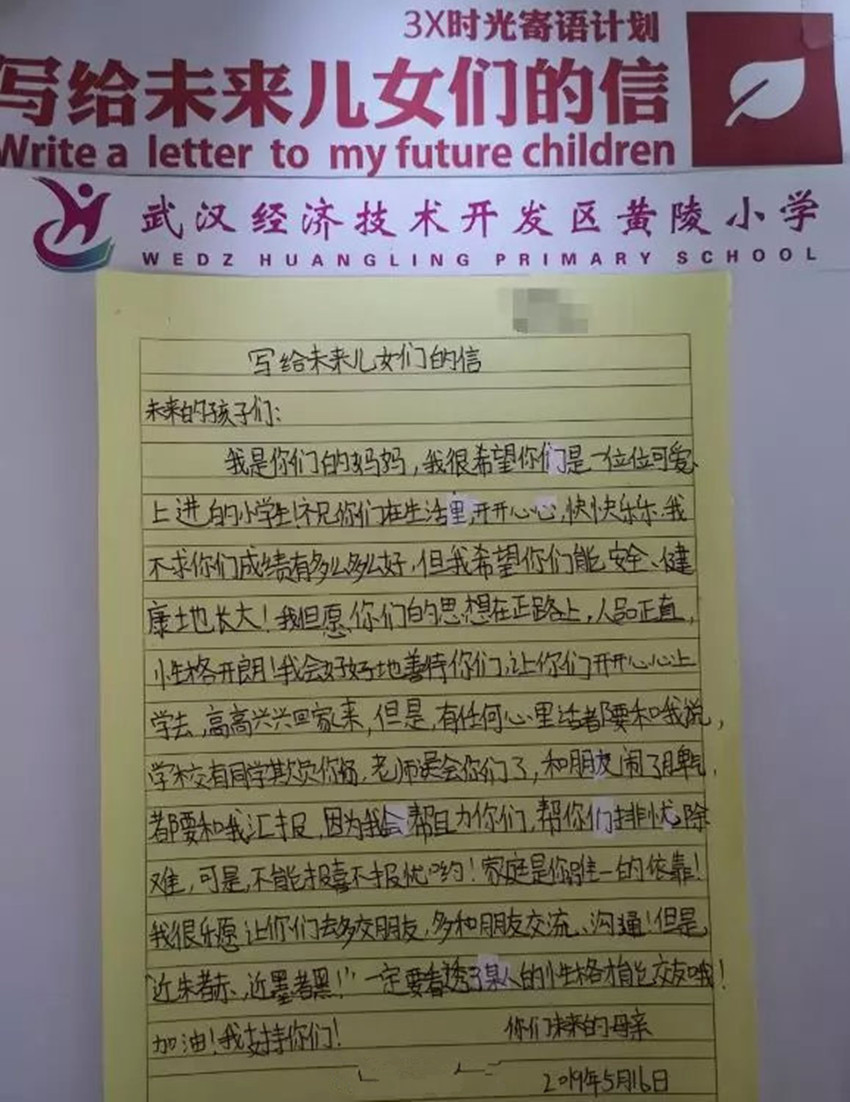 3X时光寄语计划
写给未来儿女们的信
Write a letter to my future children
武汉经济技术开发区黄陵小学
WEDZ HUANGLING PRIMARY SCHOOL
写给未来儿女们的信
未来的孩子们:
我是你们的妈妈,我很希望你们是一位位可爱、
上进的小学生!祝你们在生活里,开开心心,快快乐乐.我
不求你们成绩有多么多么好,但我希望你们能安全、健
康地长大!我但愿你们的思想在正路上,人品正直,
性格开朗!我会好好地善待你们,让你们开开心心上
学去,高高兴兴回家来,但是,有任何心里话都要和我说,
学校有同学欺负你们,老师误会你们了,和朋友闹了脾气,
都要和我汇报,因为我会帮助你们,帮你们排忧除
难,可是,不能报喜不报忧哟!家庭是你唯一的依靠!
我很乐愿让你们去多交朋友,多和朋友交流、沟通!但是,
“近朱者赤、近墨者黑!”一定要看透了某人的性格才能交友哦!
加油!我支持你们! 你们未来的母亲
2019年5月16日